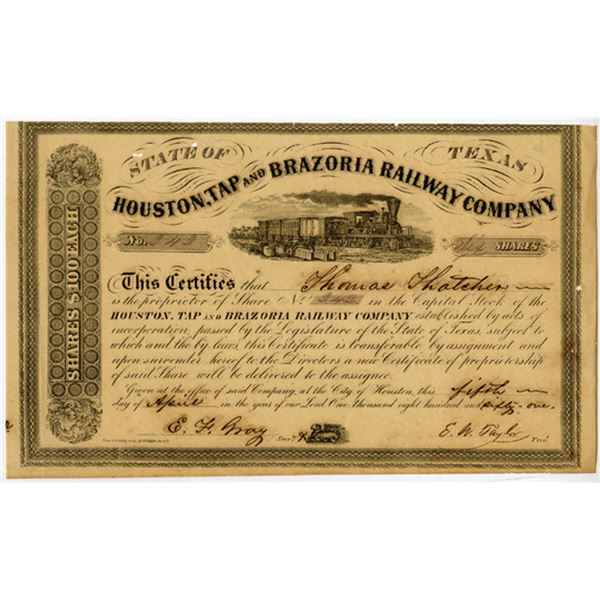 STATE OF TEXAS
HOUSTON, TAP AND BRAZORIA RAILWAY COMPANY
No. 343 SHARES
SHARES $100 EACH
This Certifies that Thomas Thatcher
is the proprietor of Share No. 343 in the Capital Stock of the
HOUSTON, TAP AND BRAZORIA RAILWAY COMPANY established by acts of
incorporation, passed by the Legislature of the State of Texas, subject to
which and the by laws, this Certificate is transferable by assignment and
upon surrender hereof to the Directors a new Certificate of proprietorship
of said Share will be delivered to the assignee.
Given at the office of said Company, at the City of Houston, this fifth
day of April in the year of our Lord One Thousand eight hundred and fifty-one.
E. F. Gray Secy. E. W. Taylor Prest.